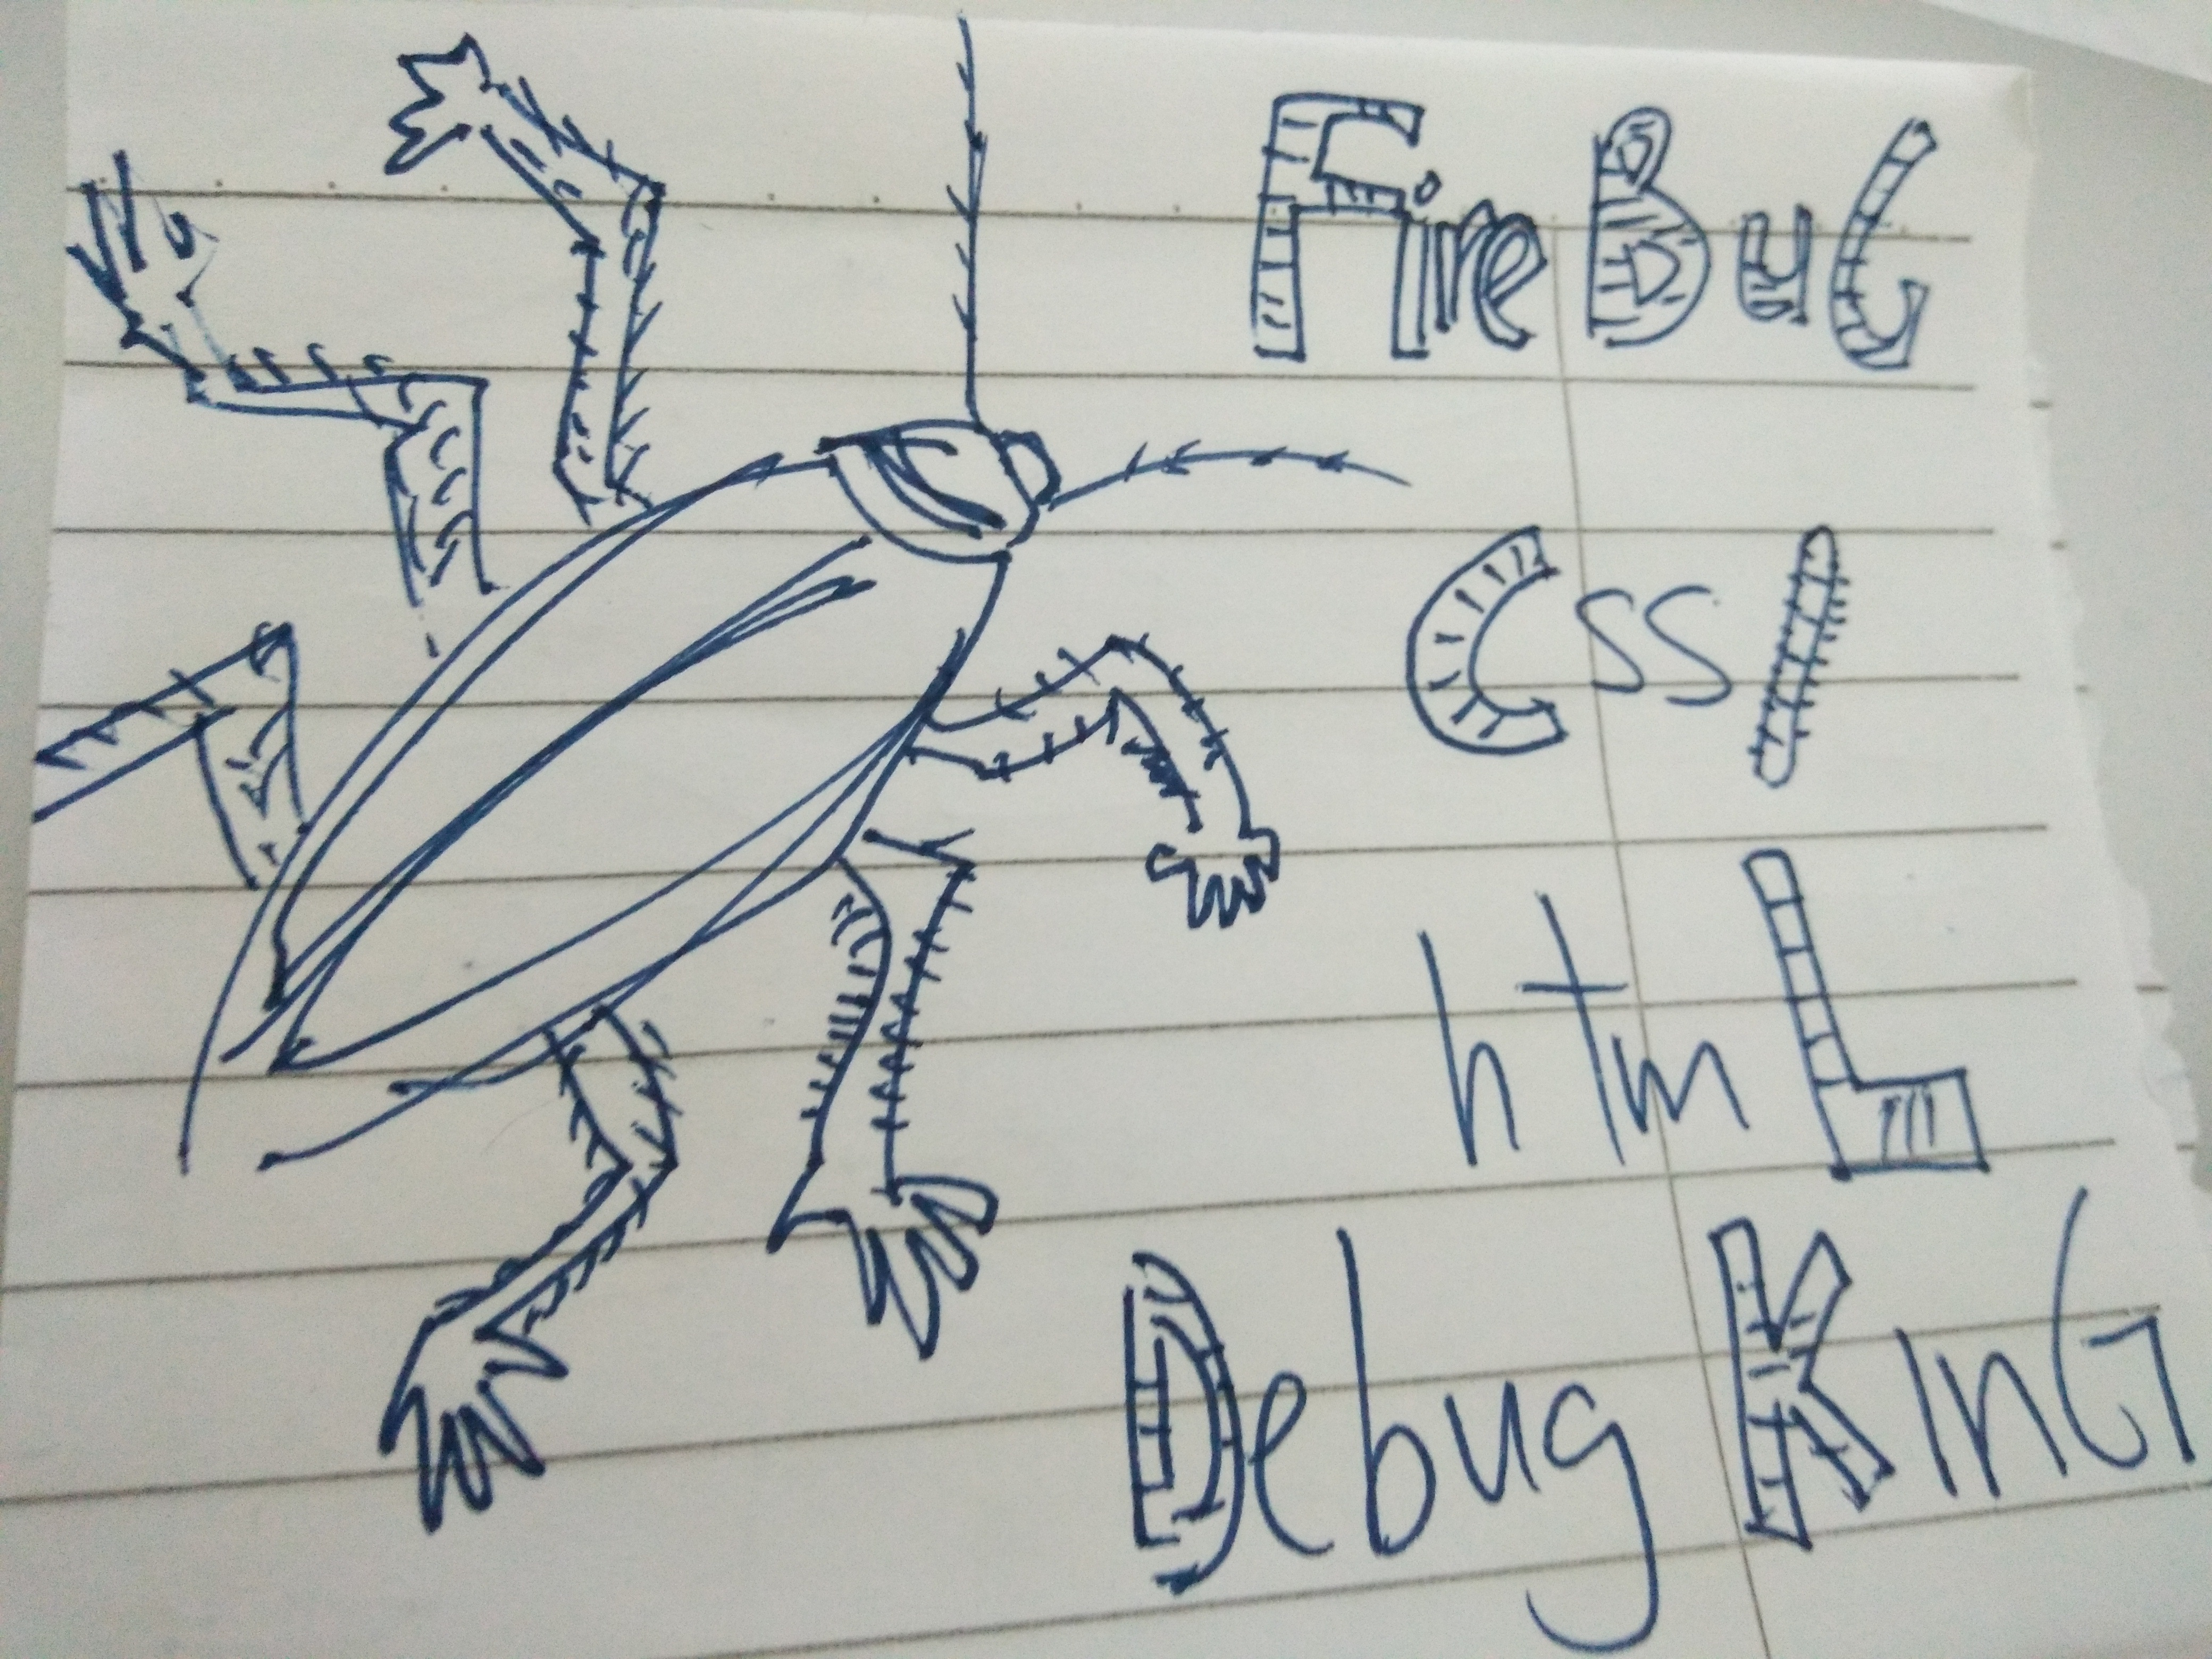 FireBuG
Css/
htmL
Debug KinG